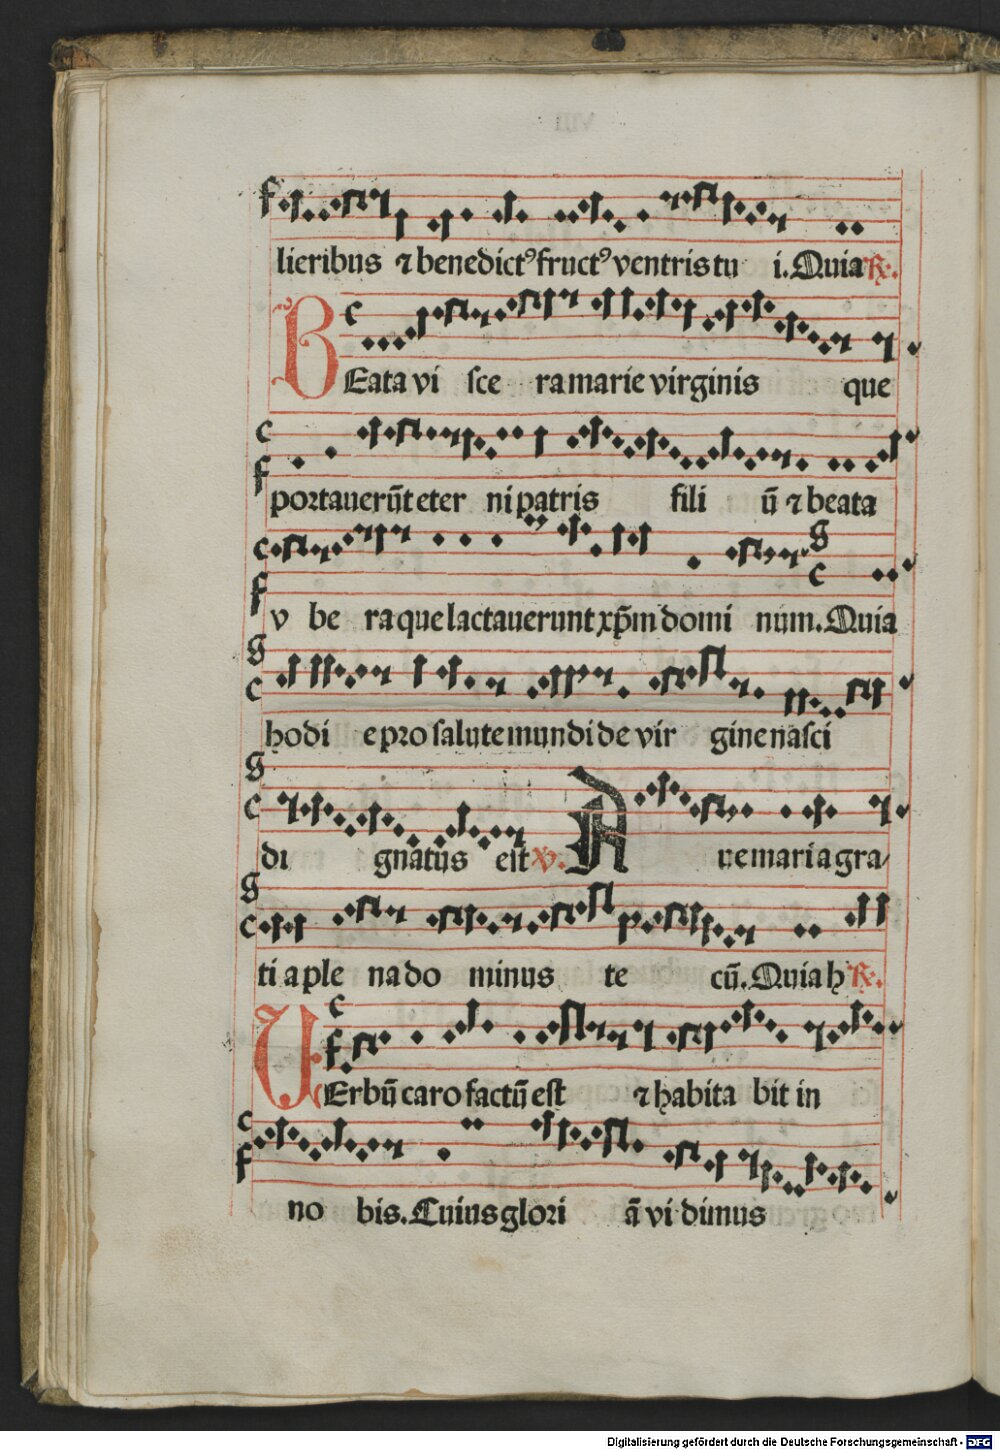 lieribus ⁊ benedictꝰ fructꝰ ventris tu i. Quia ℟.
BEata vi sce ra marie virginis que
portauerūt eter ni patris fili ū ⁊ beata
v be ra que lactauerunt xp̄m domi num. Quia
hodi e pro salute mundi de vir gine nasci
di gnatus est ℣. Aue maria gra/
ti a ple na do minus te cū. Quia h ℟.
VErbū caro factū est ⁊ habita bit in
no bis. Cuius glori ā vi dimus
Digitalisierung gefördert durch die Deutsche Forschungsgemeinschaft - DFG